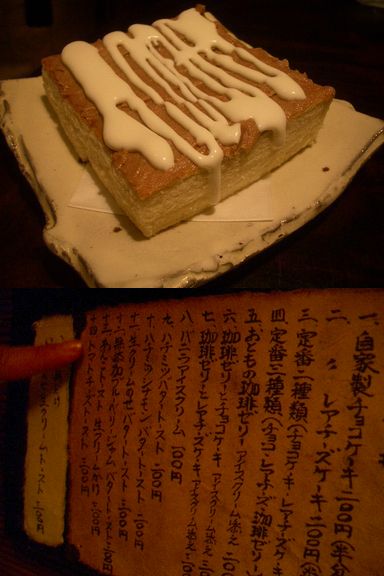 一、自家製チョコケーキ二〇〇円
二、〃 レアチーズケーキ二〇〇円
三、定番二種類(チョコケーキ・レアチーズケーキ
四、定番三種類(チョコ・レアチーズ・珈琲ゼリー
五、おともの珈琲ゼリー
六、珈琲ゼリーとチョコケーキ(アイスクリーム添え
七、珈琲ゼリーとレアチーズケーキ(アイスクリーム添え
八、バニラアイスクリーム 一〇〇円
九、ハチミツバタートースト 二〇〇円
十、ハチミツシナモンバタートースト 二〇〇円
十一、生クリームのせハチミツバタートースト 二〇〇円
十二、無添加ブルーベリージャムバタートースト 二〇〇円
十三、あんこトースト生クリームがけ 二〇〇円
十四、トマトチーズトースト 二〇〇円
クリームトースト 二〇〇円